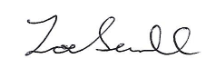 Zoe Sewell